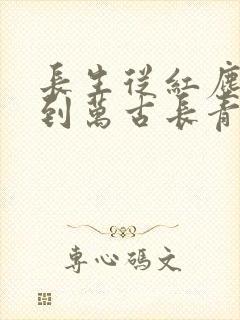 長生從紅塵
到萬古長青
專心碼文